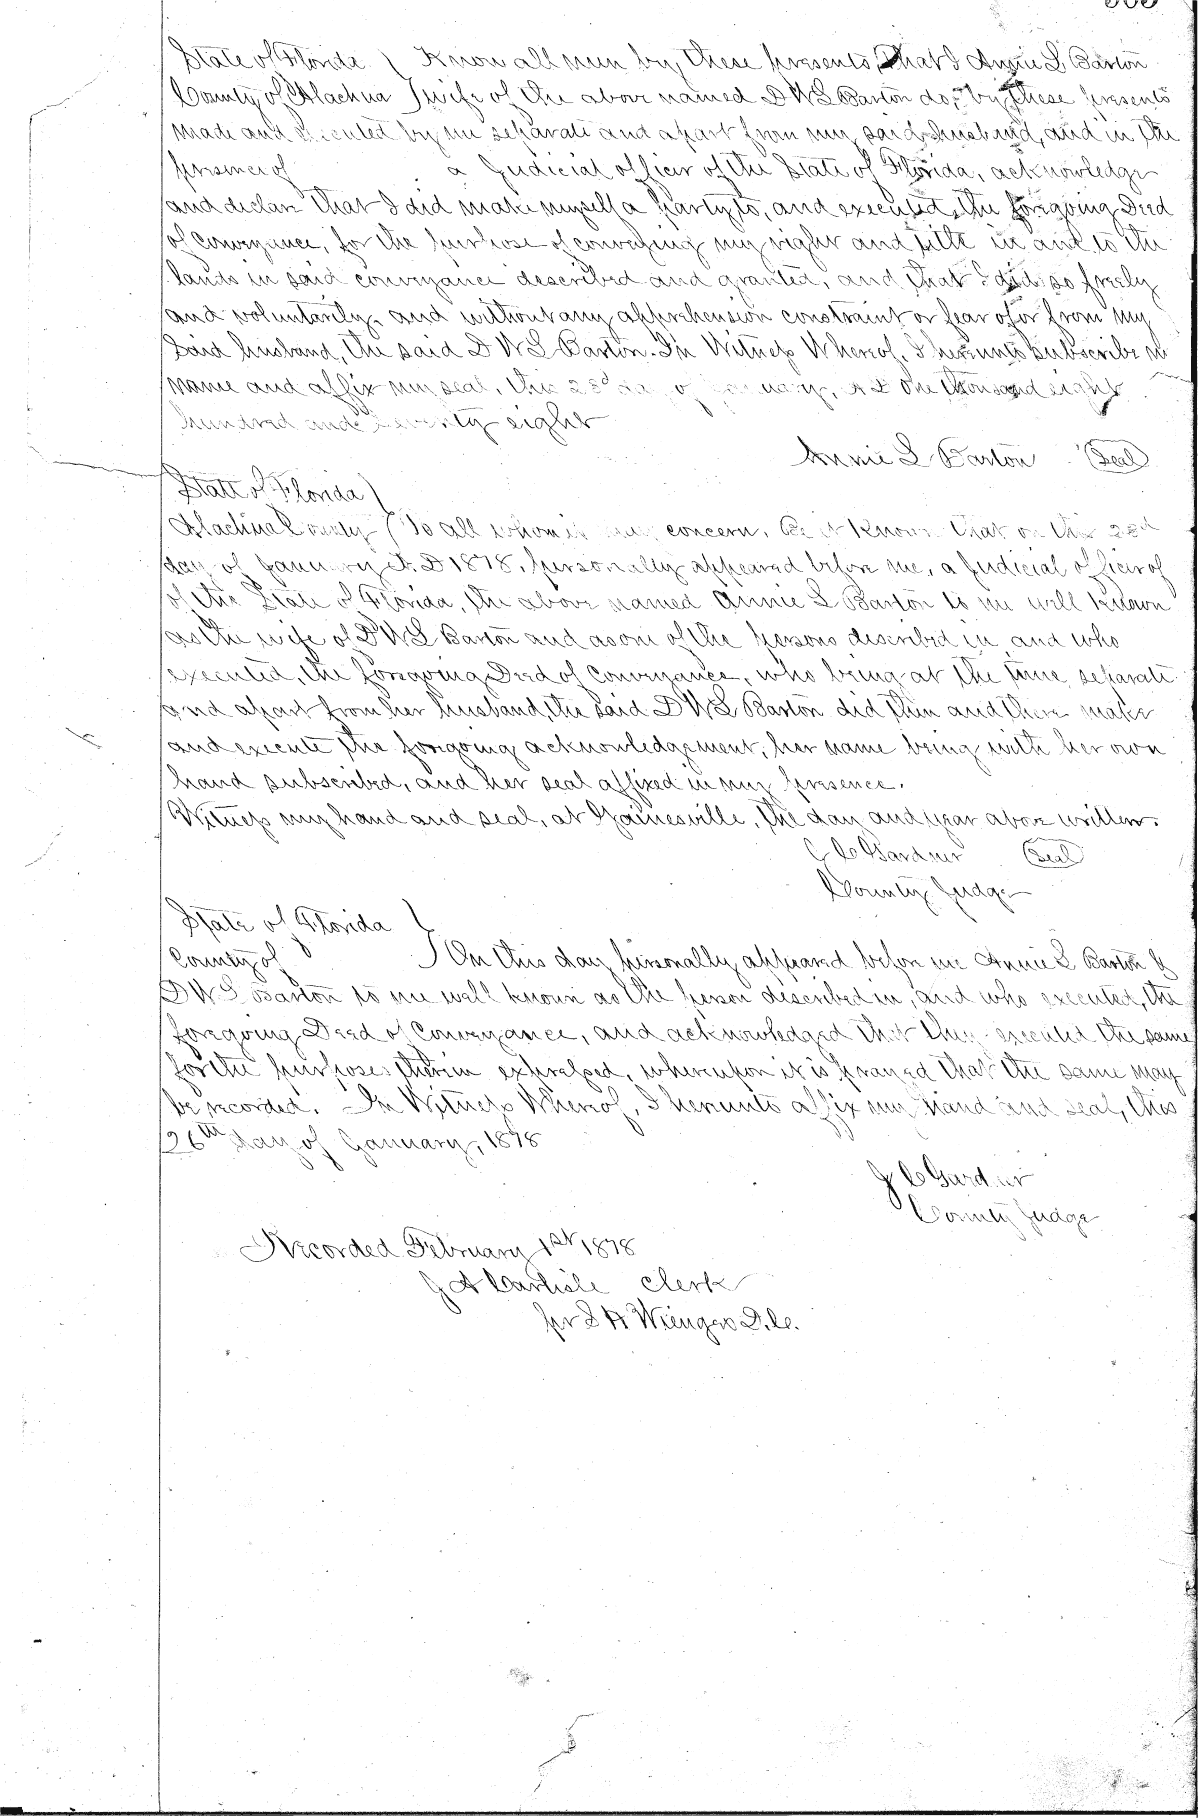 State of Florida ) Know all men by these presents, that I Annie L Barton
County of Alachua } wife of the above named D W L Barton do, by these presents
made and executed by me separate and apart from my said husband, and in the
presence of a Judicial officer of the State of Florida, acknowledge
and declare that I did make myself a party to, and executed, the foregoing Deed
of conveyance, for the purpose of conveying my right and title in and to the
lands in said conveyance described and granted, and that I did so freely
and voluntarily, and without any apprehension constraint or fear of or from my
Said husband, the said D W L Barton. In Witness Whereof, I hereunto subscribe my
name and affix my seal, this 23d day of January, A D One thousand eight
hundred and seventy eight
Annie L Barton Seal
State of Florida )
Alachua County ( To all whom it may concern, Be it Known that on this 23rd
day of January A. D 1878, personally appeared before me, a Judicial officer of
of the State of Florida, the above named Annie L Barton to me well known
as the wife of D W L Barton and as one of the persons described in, and who
executed, the foregoing Deed of Conveyance, who being at the time separate
and apart from her husband, the said D W L Barton did then and there make
and execute the forgoing acknowledgement, her name being with her own
hand subscribed, and her seal affixed in my presence.
Witness my hand and seal, at Gainesville, the day and year above written.
J C Gardner Seal
County Judge
State of Florida )
County of } On this day personally appeared before me Annie L Barton &
D W L Barton to me well known as the person described in, and who executed, the
foregoing Deed of Conveyance, and acknowledged that they executed the same
for the purposes therein expressed, whereupon it is prayed that the same may
be recorded. In Witness Whereof, I hereunto affix my hand and seal, this
26th day of January, 1878
J C Gardner
County Judge
Recorded February 1st 1878
J A Carlisle Clerk
pr S H Wienges D.C.